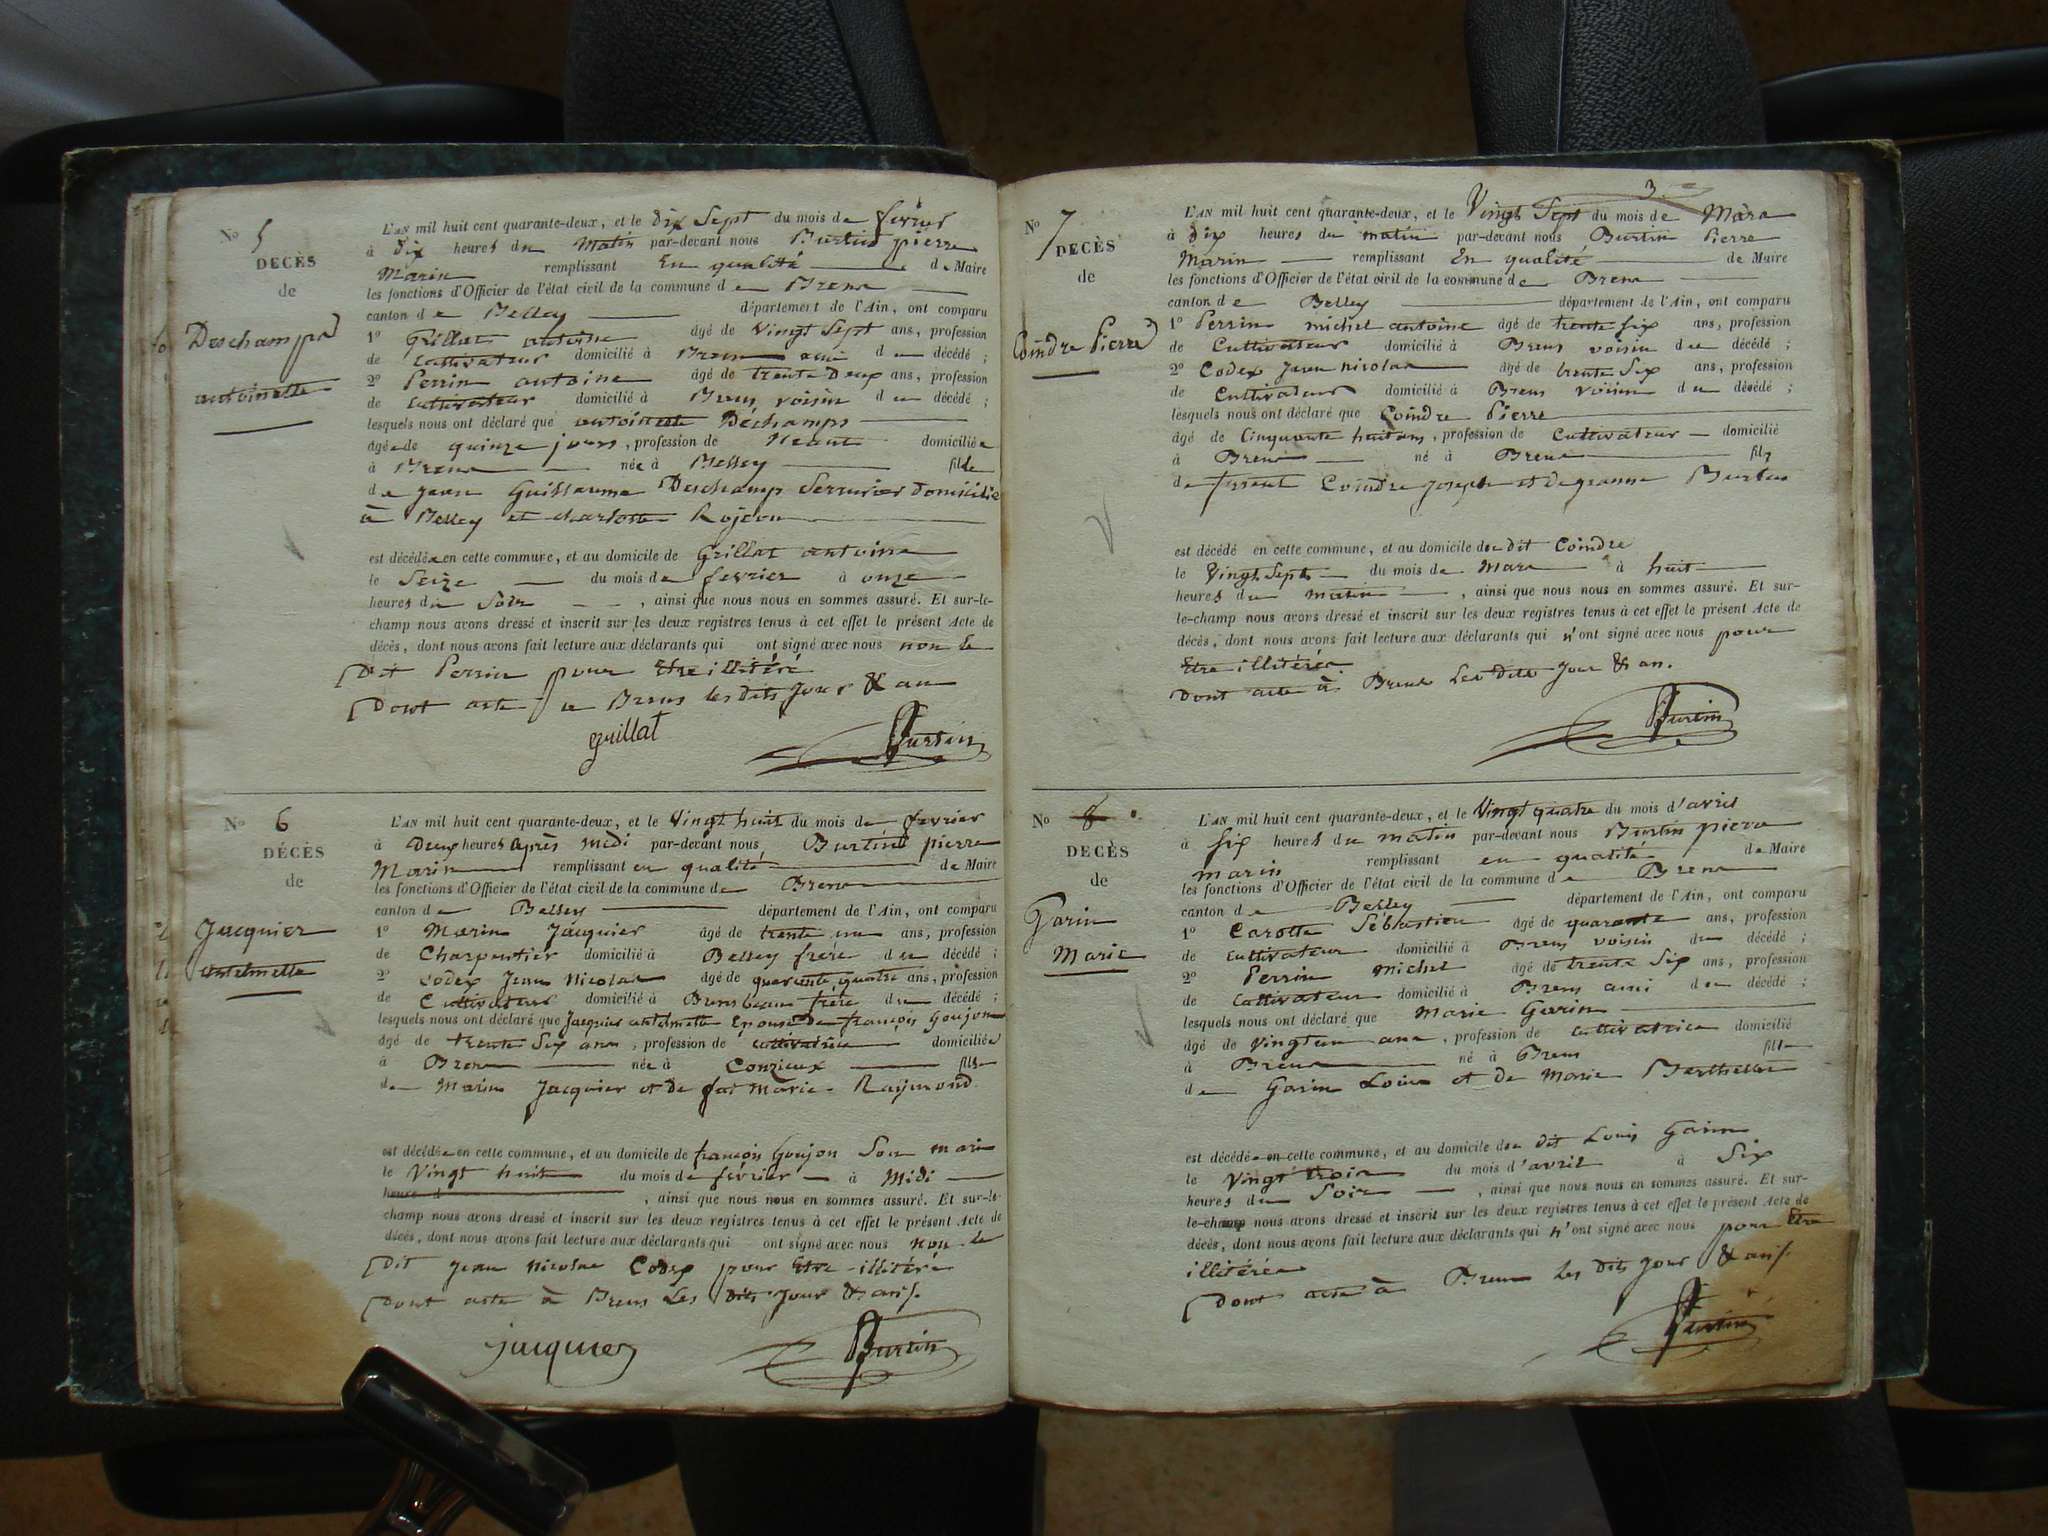 No 5
DECÈS
de
Deschamps
antoinette
L'AN mil huit cent quarante-deux, et le dix Sept du mois de fevrier
à dix heures du Matin par-devant nous Burtin pierre
Marin remplissant En qualité de Maire
les fonctions d'Officier de l'état civil de la commune de Brens
canton de Belley département de l'Ain, ont comparu
1º Grillat antoine âgé de Vingt Sept ans, profession
de Cultivateur domicilié à Brens ami du décédé ;
2º Perrin antoine âgé de trente Deux ans, profession
de Cultivateur domicilié à Brens voisin du décédé ;
lesquels nous ont déclaré que antoinette Déchamps
âgée de quinze jours, profession de Néant domiciliée
à Brens née à Belley fille
de Jean Guillaume Deschamps Serrurier domicilié
à Belley et charlotte
est décédée en cette commune, et au domicile de Grillat antoine
le Seize du mois de fevrier à onze
heures du Soir, ainsi que nous nous en sommes assuré. Et sur-le-
champ nous avons dressé et inscrit sur les deux registres tenus à cet effet le présent Acte de
décès, dont nous avons fait lecture aux déclarants qui ont signé avec nous non le
Dit Perrin pour Etre illitéré
Dont acte a Brens les dits Jour & an
grillat Burtin
No 6
DÉCÈS
de
Jacquier
antelmette
L'AN mil huit cent quarante-deux, et le Vingt huit du mois de fevrier
à Deux heures après midi par-devant nous Burtin pierre
Marin remplissant en qualité de Maire
les fonctions d'Officier de l'état civil de la commune de Brens
canton de Belley département de l'Ain, ont comparu
1º Marin Jacquier âgé de trente un ans, profession
de Charpentier domicilié à Belley frère du décédé ;
2º Codex Jean Nicolas âgé de quarante quatre ans, profession
de Cultivateur domicilié à Brens beau frère du décédé ;
lesquels nous ont déclaré que Jacquier antelmette Epouse de françois Goujon
âgé de trente Six ans, profession de Cultivatrice domiciliée
à Brens née à Conzieux fille
de Marin Jacquier et de Marie Raymond
est décédée en cette commune, et au domicile de françois Goujon Son mari
le Vingt huit du mois de février à Midi
heure d , ainsi que nous nous en sommes assuré. Et sur-le-
champ nous avons dressé et inscrit sur les deux registres tenus à cet effet le présent Acte de
décès, dont nous avons fait lecture aux déclarants qui ont signé avec nous non le
Dit Jean Nicolas Codex pour Etre illitéré
Dont acte à Brens Les dits Jour & an
jacquier Burtin
3
No 7
DECÈS
de
Coindre Pierre
L'AN mil huit cent quarante-deux, et le Vingt Sept du mois de Mars
à dix heures du matin par-devant nous Burtin Pierre
Marin remplissant En qualité de Maire
les fonctions d'Officier de l'état civil de la commune de Brens
canton de Belley département de l'Ain, ont comparu
1º Perrin michel antoine âgé de trente six ans, profession
de Cultivateur domicilié à Brens voisin du décédé ;
2º Codex Jean nicolas âgé de trente Six ans, profession
de Cultivateur domicilié à Brens Voisin du décédé ;
lesquels nous ont déclaré que Coindre Pierre
âgé de Cinquante huit ans, profession de Cultivateur domicilié
à Brens né à Brens fils
de Coindre Joseph et de Burtin
est décédé en cette commune, et au domicile du dit Coindre
le Vingt Sept du mois de Mars à huit
heures du matin, ainsi que nous nous en sommes assuré. Et sur-
le-champ nous avons dressé et inscrit sur les deux registres tenus à cet effet le présent Acte de
décès, dont nous avons fait lecture aux déclarants qui n'ont signé avec nous pour
Etre illitérés
Dont acte à Brens Les dits Jour & an.
Burtin
No 8
DECÈS
de
Garin
Marie
L'AN mil huit cent quarante-deux, et le Vingt quatre du mois d'avril
à Six heures du matin par-devant nous Burtin pierre
marin remplissant en qualité de Maire
les fonctions d'Officier de l'état civil de la commune de Brens
canton de Belley département de l'Ain, ont comparu
1º Carotte Sébastien âgé de quarante ans, profession
de Cultivateur domicilié à Brens voisin du décédé ;
2º Perrin Michel âgé de trente Six ans, profession
de Cultivateur domicilié à Brens ami du décédé ;
lesquels nous ont déclaré que Marie Garin
âgé de Vingt un ans, profession de Cultivatrice domicilié
à Brens né à Brens fille
de Garin Louis et de Marie Berthelier
est décédée en cette commune, et au domicile du dit Louis Garin
le Vingt trois du mois d'avril à Six
heures du Soir, ainsi que nous nous en sommes assuré. Et sur-
le-champ nous avons dressé et inscrit sur les deux registres tenus à cet effet le présent Acte de
décès, dont nous avons fait lecture aux déclarants qui n'ont signé avec nous pour Etre
illitérés
Dont acte à Brens les dits jour & an
Burtin